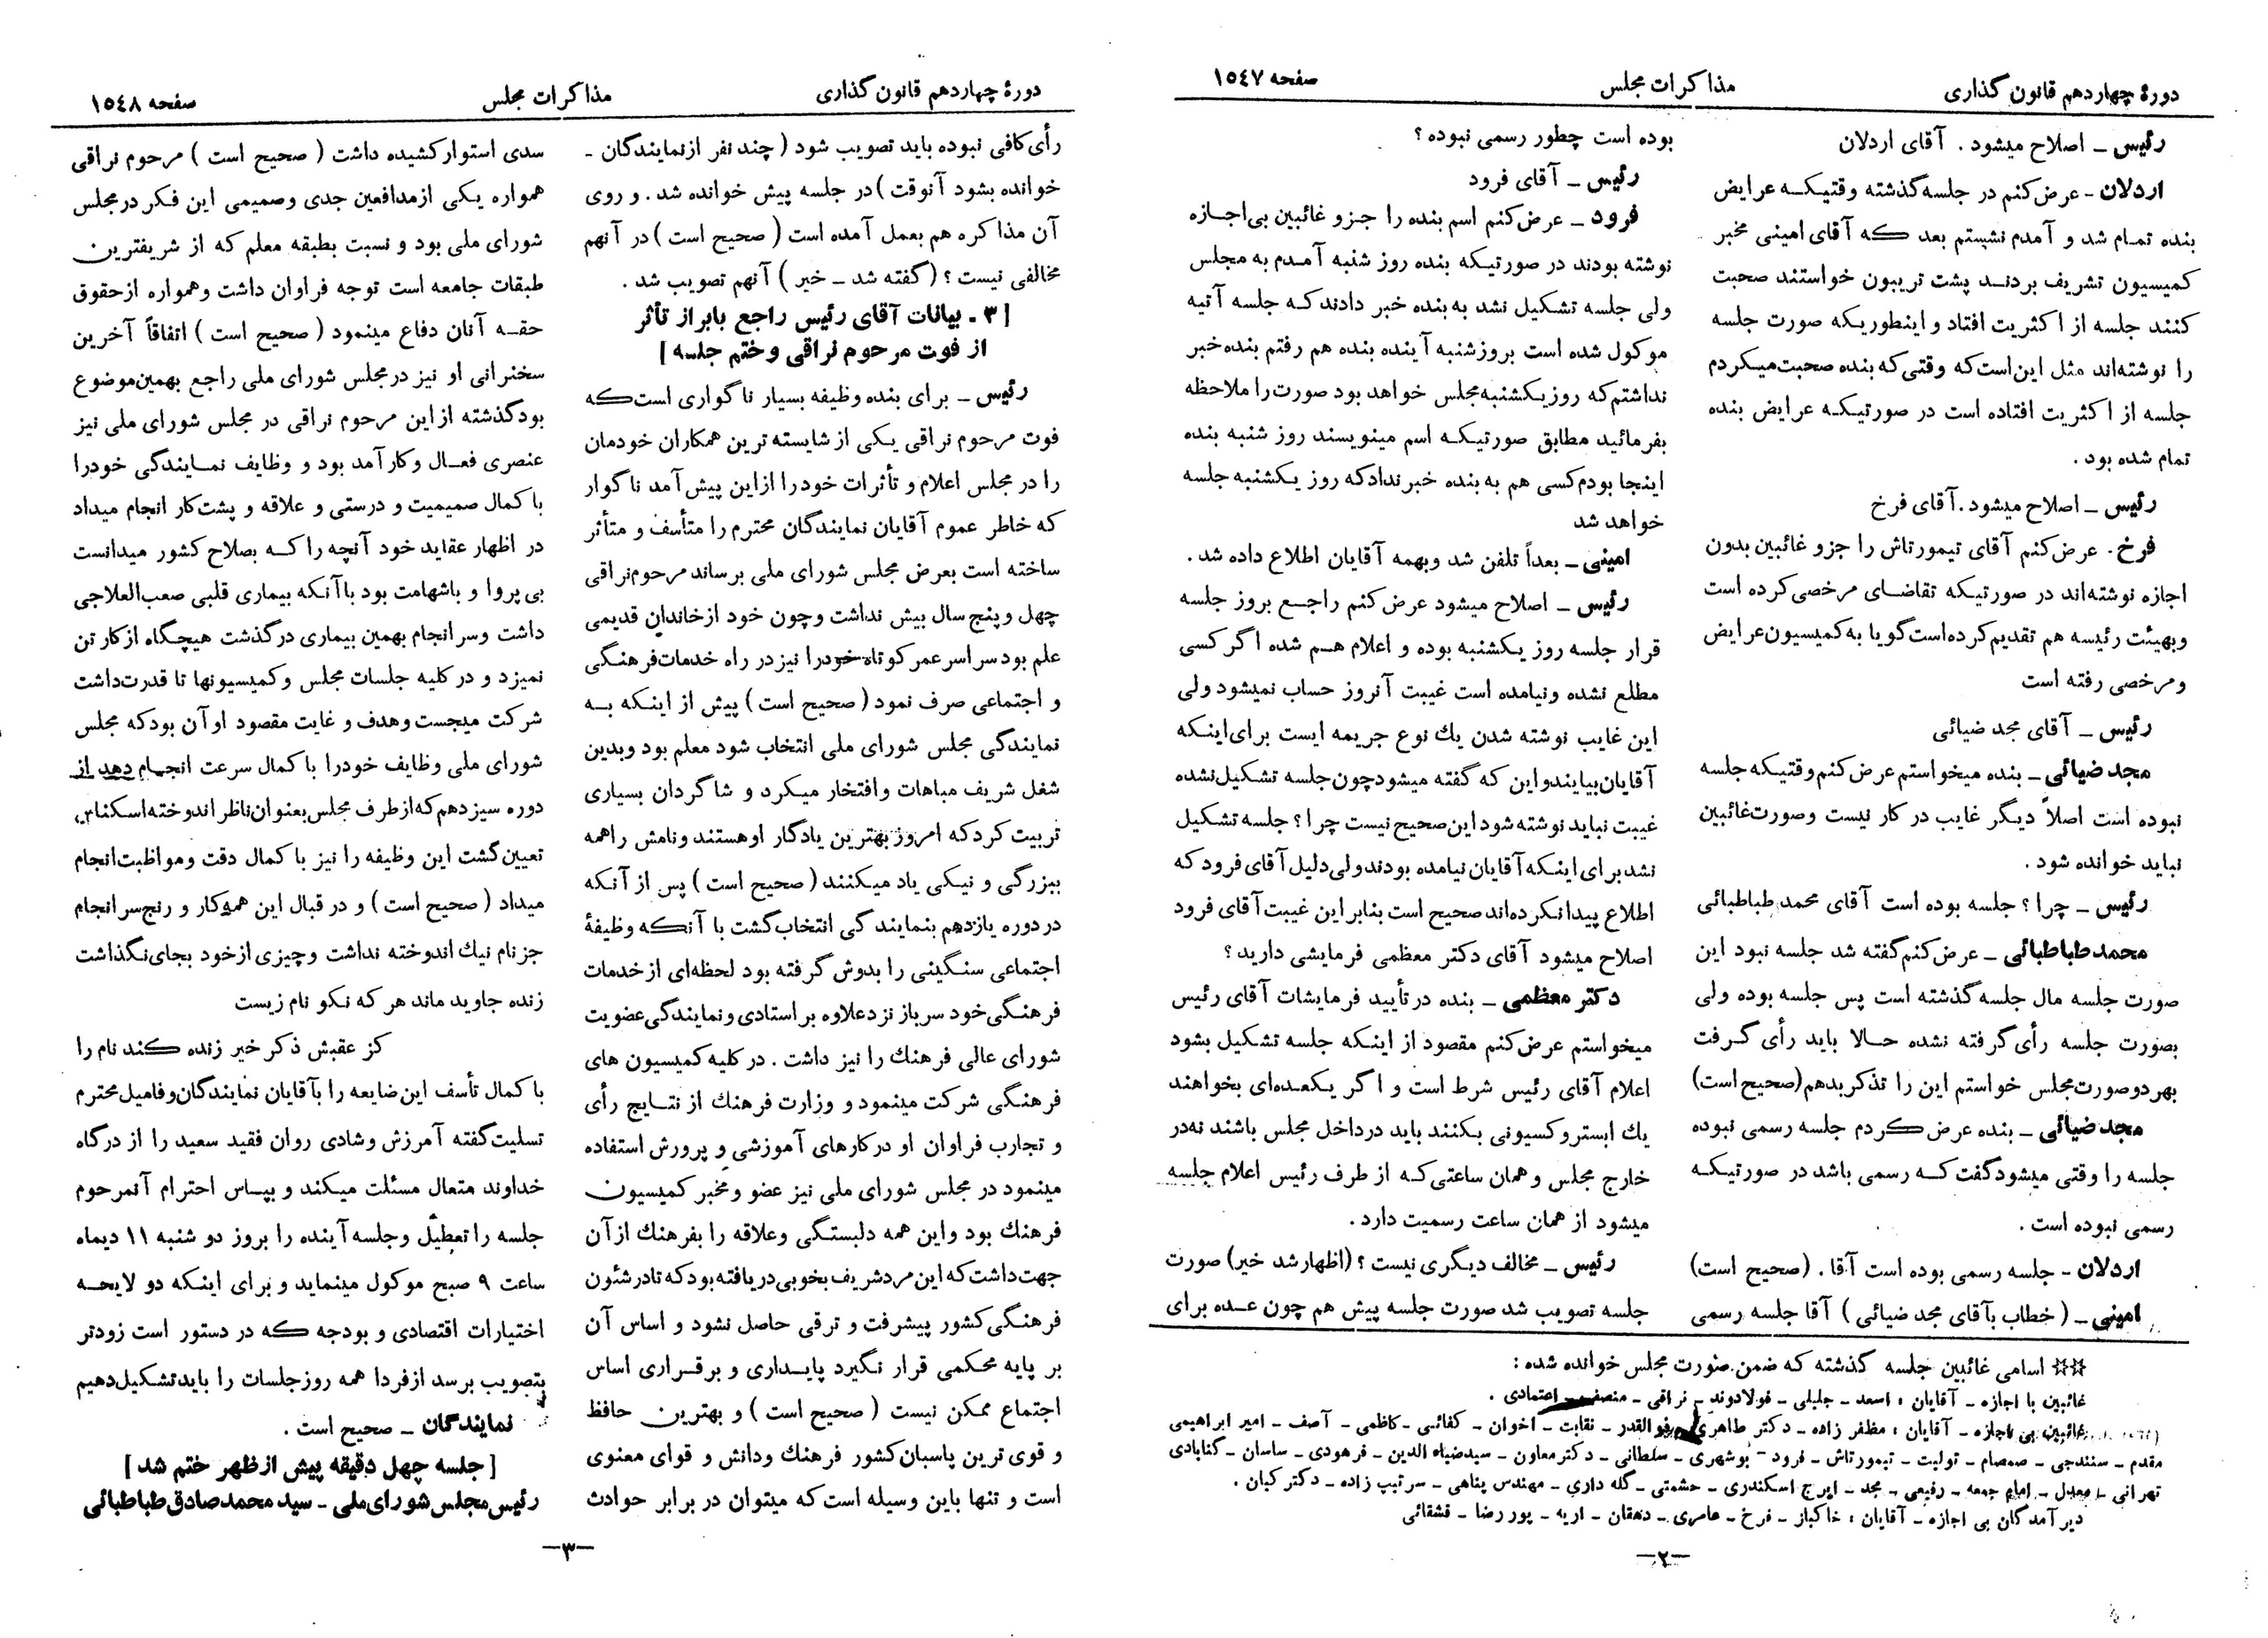 دورهٔ چهاردهم قانون گذاری
مذاکرات مجلس
صفحه ۱۵٤۷
رئیس ـ اصلاح میشود . آقای اردلان
اردلان ـ عرض کنم در جلسه گذشته وقتیکه عرایض
بنده تمام شد و آمدم نشستم بعد که آقای امینی مخبر
کمیسیون تشریف بردند پشت تریبون خواستند صحبت
کنند جلسه از اکثریت افتاد و اینطوریکه صورت جلسه
را نوشته‌اند مثل این است که وقتی که بنده صحبت میکردم
جلسه از اکثریت افتاده است در صورتیکه عرایض بنده
تمام شده بود .
رئیس ـ اصلاح میشود . آقای فرخ
فرخ . عرض کنم آقای تیمورتاش را جزو غائبین بدون
اجازه نوشته‌اند در صورتیکه تقاضای مرخصی کرده است
و بهیئت رئیسه هم تقدیم کرده است گویا به کمیسیون عرایض
و مرخصی رفته است
رئیس ـ آقای مجد ضیائی
مجد ضیائی ـ بنده میخواستم عرض کنم وقتیکه جلسه
نبوده است اصلاً دیگر غایب در کار نیست و صورت غائبین
نباید خوانده شود .
رئیس ـ چرا ؟ جلسه بوده است آقای محمد طباطبائی
محمد طباطبائی ـ عرض کنم گفته شد جلسه نبود این
صورت جلسه مال جلسه گذشته است پس جلسه بوده ولی
بصورت جلسه رأی گرفته نشده حالا باید رأی گرفت
بهر دو صورت مجلس خواستم این را تذکر بدهم (صحیح است)
مجد ضیائی ـ بنده عرض کردم جلسه رسمی نبوده
جلسه را وقتی میشود گفت که رسمی باشد در صورتیکه
رسمی نبوده است .
اردلان ـ جلسه رسمی بوده است آقا . (صحیح است)
امینی ـ ( خطاب بآقای مجد ضیائی ) آقا جلسه رسمی
بوده است چطور رسمی نبوده ؟
رئیس ـ آقای فرود
فرود ـ عرض کنم اسم بنده را جزو غائبین بی‌اجازه
نوشته بودند در صورتیکه بنده روز شنبه آمدم به مجلس
ولی جلسه تشکیل نشد به بنده خبر دادند که جلسه آتیه
موکول شده است بروز شنبه آینده بنده هم رفتم بنده خبر
نداشتم که روز یکشنبه مجلس خواهد بود صورت را ملاحظه
بفرمائید مطابق صورتیکه اسم مینویسند روز شنبه بنده
اینجا بودم کسی هم به بنده خبر نداد که روز یکشنبه جلسه
خواهد شد
امینی ـ بعداً تلفن شد و بهمه آقایان اطلاع داده شد .
رئیس ـ اصلاح میشود عرض کنم راجع بروز جلسه
قرار جلسه روز یکشنبه بوده و اعلام هم شده اگر کسی
مطلع نشده و نیامده است غیبت آنروز حساب نمیشود ولی
این غایب نوشته شدن یك نوع جریمه ایست برای اینکه
آقایان بیایند و این که گفته میشود چون جلسه تشکیل نشده
غیبت نباید نوشته شود این صحیح نیست چرا ؟ جلسه تشکیل
نشد برای اینکه آقایان نیامده بودند ولی دلیل آقای فرود که
اطلاع پیدا نکرده‌اند صحیح است بنابر این غیبت آقای فرود
اصلاح میشود آقای دکتر معظمی فرمایشی دارید ؟
دکتر معظمی ـ بنده در تأیید فرمایشات آقای رئیس
میخواستم عرض کنم مقصود از اینکه جلسه تشکیل بشود
اعلام آقای رئیس شرط است و اگر یکعده‌ای بخواهند
یك ابستروکسیونی بکنند باید در داخل مجلس باشند نه در
خارج مجلس و همان ساعتی که از طرف رئیس اعلام جلسه
میشود از همان ساعت رسمیت دارد .
رئیس ـ مخالف دیگری نیست ؟ (اظهار شد خیر) صورت
جلسه تصویب شد صورت جلسه پیش هم چون عده برای
※※ اسامی غائبین جلسه گذشته که ضمن صورت مجلس خوانده شده :
غائبین با اجازه ـ آقایان : اسعد ـ جلیلی ـ فولادوند ـ نراقی ـ منصف ـ اعتمادی .
غائبین بی اجازه ـ آقایان : مظفر زاده ـ دکتر طاهری ـ ذوالقدر ـ نقابت ـ اخوان ـ کفائی ـ کاظمی ـ آصف ـ امیر ابراهیمی
مقدم ـ سنندجی ـ صمصام ـ تولیت ـ تیمورتاش ـ فرود ـ بوشهری ـ سلطانی ـ دکتر معاون ـ سیدضیاء الدین ـ فرهودی ـ ساسان ـ گنابادی
تهرانی ـ معدل ـ امام جمعه ـ رفیعی ـ مجد ـ ایرج اسکندری ـ حشمتی ـ گله داری ـ مهندس پناهی ـ سرتیپ زاده ـ دکتر کیان .
دیر آمدگان بی اجازه ـ آقایان : خاکباز ـ فرخ ـ عامری ـ دهقان ـ اریه ـ پور رضا ـ قشقائی
—۲—
دورهٔ چهاردهم قانون گذاری
مذاکرات مجلس
صفحه ۱۵٤۸
رأی کافی نبوده باید تصویب شود ( چند نفر از نمایندگان ـ
خوانده بشود آنوقت ) در جلسه پیش خوانده شد . و روی
آن مذاکره هم بعمل آمده است ( صحیح است ) در آنهم
مخالفی نیست ؟ ( گفته شد ـ خیر ) آنهم تصویب شد .
[ ۳ ـ بیانات آقای رئیس راجع بابراز تأثر
از فوت مرحوم نراقی و ختم جلسه ]
رئیس ـ برای بنده وظیفه بسیار ناگواری است که
فوت مرحوم نراقی یکی از شایسته ترین همکاران خودمان
را در مجلس اعلام و تأثرات خود را از این پیش آمد ناگوار
که خاطر عموم آقایان نمایندگان محترم را متأسف و متأثر
ساخته است بعرض مجلس شورای ملی برساند مرحوم نراقی
چهل و پنج سال بیش نداشت و چون خود از خاندان قدیمی
علم بود سراسر عمر کوتاه خود را نیز در راه خدمات فرهنگی
و اجتماعی صرف نمود ( صحیح است ) پیش از اینکه به
نمایندگی مجلس شورای ملی انتخاب شود معلم بود و بدین
شغل شریف مباهات و افتخار میکرد و شاگردان بسیاری
تربیت کرد که امروز بهترین یادگار او هستند و نامش را همه
ببزرگی و نیکی یاد میکنند ( صحیح است ) پس از آنکه
در دوره یازدهم بنمایندگی انتخاب گشت با آنکه وظیفهٔ
اجتماعی سنگینی را بدوش گرفته بود لحظه‌ای از خدمات
فرهنگی خود سرباز نزد علاوه بر استادی و نمایندگی عضویت
شورای عالی فرهنك را نیز داشت . در کلیه کمیسیون های
فرهنگی شرکت مینمود و وزارت فرهنك از نتایج رأی
و تجارب فراوان او در کارهای آموزشی و پرورش استفاده
مینمود در مجلس شورای ملی نیز عضو و مخبر کمیسیون
فرهنك بود و این همه دلبستگی و علاقه را بفرهنك از آن
جهت داشت که این مرد شریف بخوبی دریافته بود که تا در شئون
فرهنگی کشور پیشرفت و ترقی حاصل نشود و اساس آن
بر پایه محکمی قرار نگیرد پایداری و برقراری اساس
اجتماع ممکن نیست ( صحیح است ) و بهترین حافظ
و قوی ترین پاسبان کشور فرهنك و دانش و قوای معنوی
است و تنها باین وسیله است که میتوان در برابر حوادث
سدی استوار کشیده داشت ( صحیح است ) مرحوم نراقی
همواره یکی از مدافعین جدی و صمیمی این فکر در مجلس
شورای ملی بود و نسبت بطبقه معلم که از شریفترین
طبقات جامعه است توجه فراوان داشت و همواره از حقوق
حقه آنان دفاع مینمود ( صحیح است ) اتفاقاً آخرین
سخنرانی او نیز در مجلس شورای ملی راجع بهمین موضوع
بود گذشته از این مرحوم نراقی در مجلس شورای ملی نیز
عنصری فعال و کار آمد بود و وظایف نمایندگی خود را
با کمال صمیمیت و درستی و علاقه و پشت کار انجام میداد
در اظهار عقاید خود آنچه را که بصلاح کشور میدانست
بی پروا و باشهامت بود باآنکه بیماری قلبی صعب العلاجی
داشت و سرانجام بهمین بیماری درگذشت هیچگاه از کار تن
نمیزد و در کلیه جلسات مجلس و کمیسیونها تا قدرت داشت
شرکت میجست و هدف و غایت مقصود او آن بود که مجلس
شورای ملی وظایف خود را با کمال سرعت انجام دهد از
دوره سیزدهم که از طرف مجلس بعنوان ناظر اندوخته اسکناس
تعیین گشت این وظیفه را نیز با کمال دقت و مواظبت انجام
میداد ( صحیح است ) و در قبال این همه کار و رنج سرانجام
جز نام نیك اندوخته نداشت و چیزی از خود بجای نگذاشت
زنده جاوید ماند هر که نکو نام زیست
کز عقبش ذکر خیر زنده کند نام را
با کمال تأسف این ضایعه را بآقایان نمایندگان و فامیل محترم
تسلیت گفته آمرزش و شادی روان فقید سعید را از درگاه
خداوند متعال مسئلت میکند و بپاس احترام آنمرحوم
جلسه را تعطیل و جلسه آینده را بروز دو شنبه ۱۱ دیماه
ساعت ۹ صبح موکول مینماید و برای اینکه دو لایحه
اختیارات اقتصادی و بودجه که در دستور است زودتر
بتصویب برسد از فردا همه روز جلسات را باید تشکیل دهیم
نمایندگان ـ صحیح است .
[ جلسه چهل دقیقه پیش از ظهر ختم شد ]
رئیس مجلس شورای ملی ـ سید محمد صادق طباطبائی
—۳—